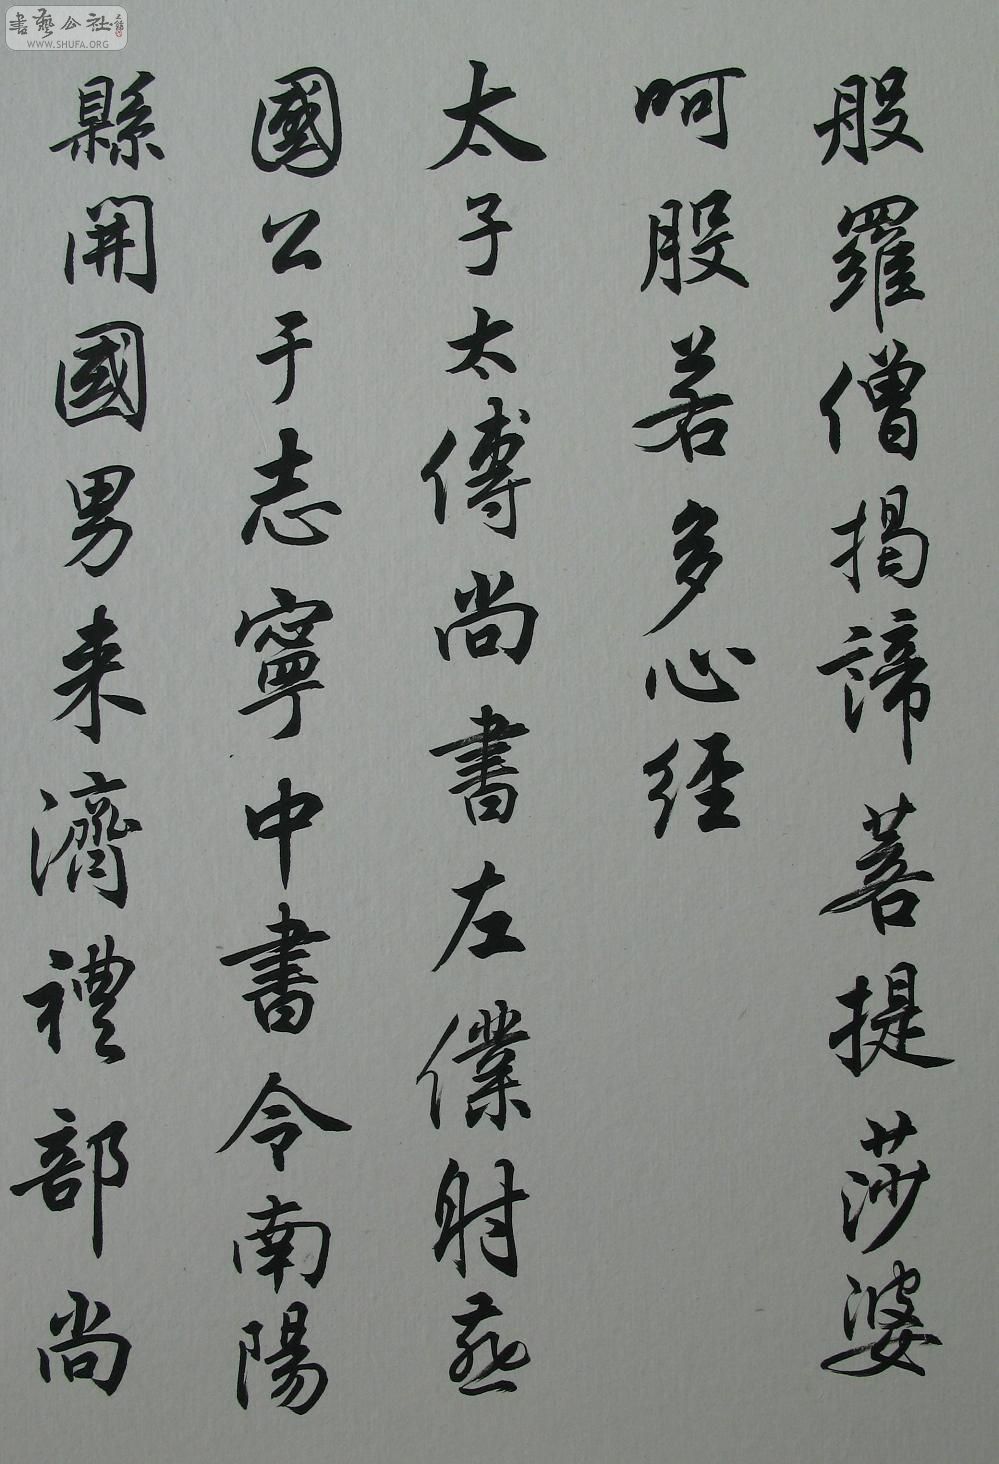 般羅僧揭諦菩提莎婆
呵般若多心经
太子太傅尚書左僕射燕
國公于志寧中書令南陽
縣開國男来濟禮部尚
書藝公社
WWW.SHUFA.ORG